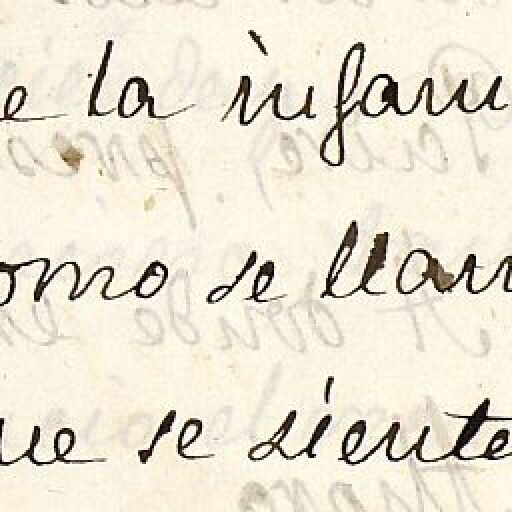 e la infam
omo se llam
ue se siente